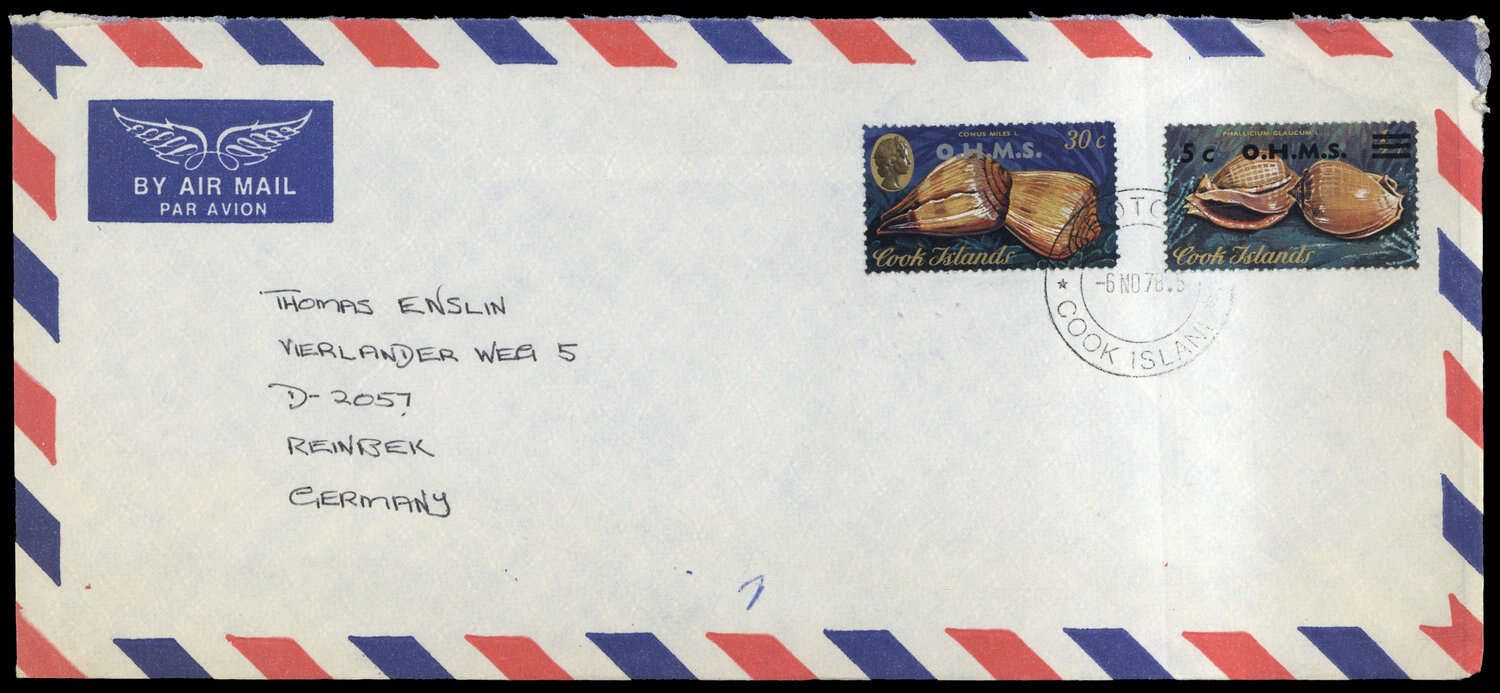 BY AIR MAIL
PAR AVION
CONUS MILES L.
30 c
O.H.M.S.
Cook Islands
PHALLICIUM GLAUCUM L.
5 c O.H.M.S.
Cook Islands
-6 NO.78.
COOK ISLAN
THOMAS ENSLIN
VIERLANDER WEG 5
D-2057
REINBEK
GERMANY